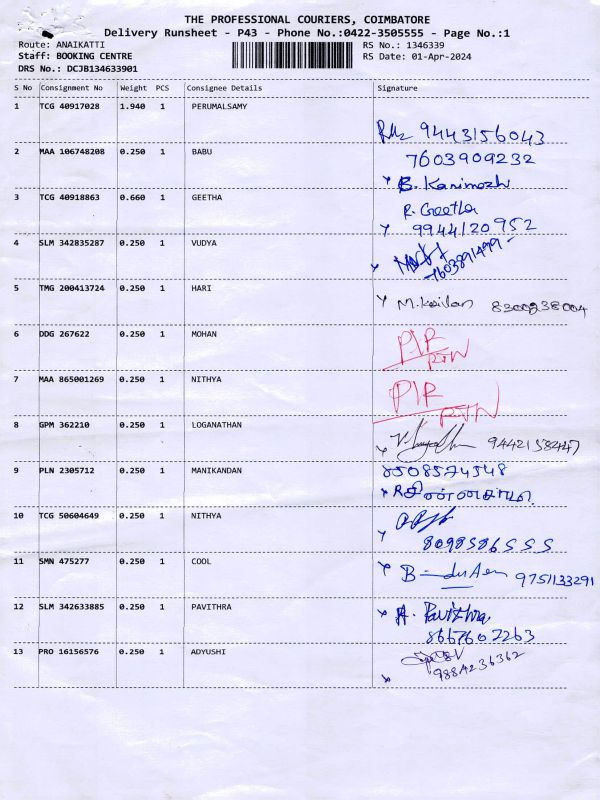 THE PROFESSIONAL COURIERS, COIMBATORE
Delivery Runsheet - P43 - Phone No.:0422-3505555 - Page No.:1
Route: ANAIKATTI RS No.: 1346339
Staff: BOOKING CENTRE RS Date: 01-Apr-2024
DRS No.: DCJB134633901
S No Consignment No Weight PCS Consignee Details Signature
1 TCG 40917028 1.940 1 PERUMALSAMY
9443156043
2 MAA 106748208 0.250 1 BABU 7603909232
B. Kanimozhi
3 TCG 40918863 0.660 1 GEETHA
R. Geetha
9944120952
4 SLM 342835287 0.250 1 VUDYA
7603891499
5 TMG 200413724 0.250 1 HARI
M. Kailan 8300938004
6 DDG 267622 0.250 1 MOHAN P/R
RTN
7 MAA 865001269 0.250 1 NITHYA P/R
RTN
8 GPM 362210 0.250 1 LOGANATHAN
9442158447
9 PLN 2305712 0.250 1 MANIKANDAN 8508574548
10 TCG 50604649 0.250 1 NITHYA
8098586555
11 SMN 475277 0.250 1 COOL
9751133291
12 SLM 342633885 0.250 1 PAVITHRA A. Pavithra
8667607263
13 PRO 16156576 0.250 1 ADYUSHI
9884236362